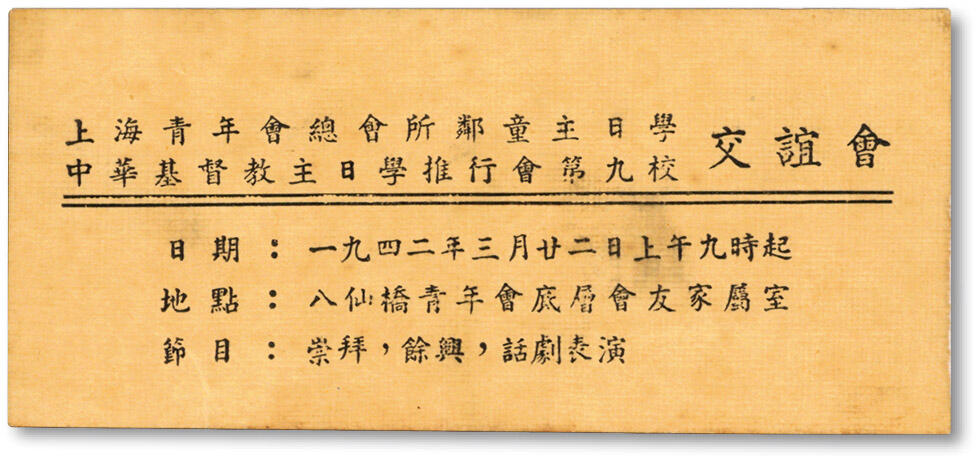 上海青年會總會所鄰童主日學
中華基督教主日學推行會第九校
交誼會
日期：一九四二年三月廿二日上午九時起
地點：八仙橋青年會底層會友家屬室
節目：崇拜，餘興，話劇表演